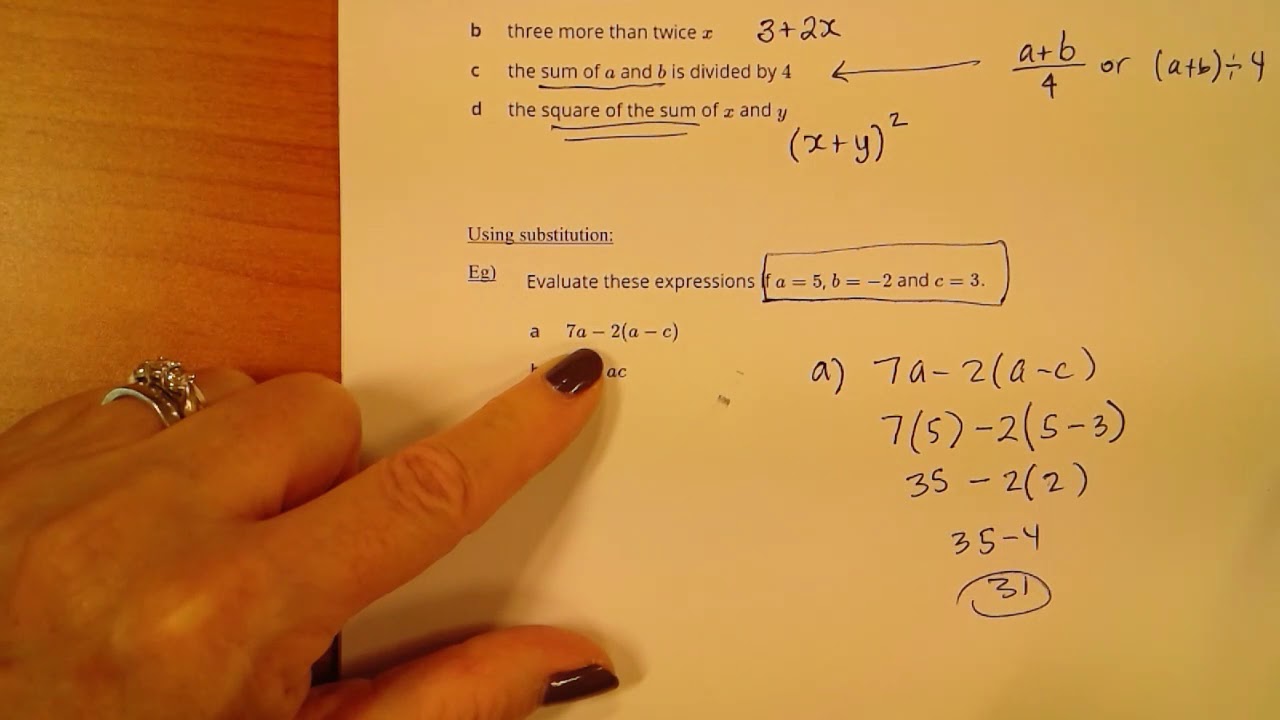 b three more than twice x 3+2x
c the sum of a and b is divided by 4 a+b/4 or (a+b)÷4
d the square of the sum of x and y
(x+y)²
Using substitution:
Eg) Evaluate these expressions if a = 5, b = −2 and c = 3.
a 7a − 2(a − c)
ac
a) 7a-2(a-c)
7(5)-2(5-3)
35 - 2(2)
35-4
31